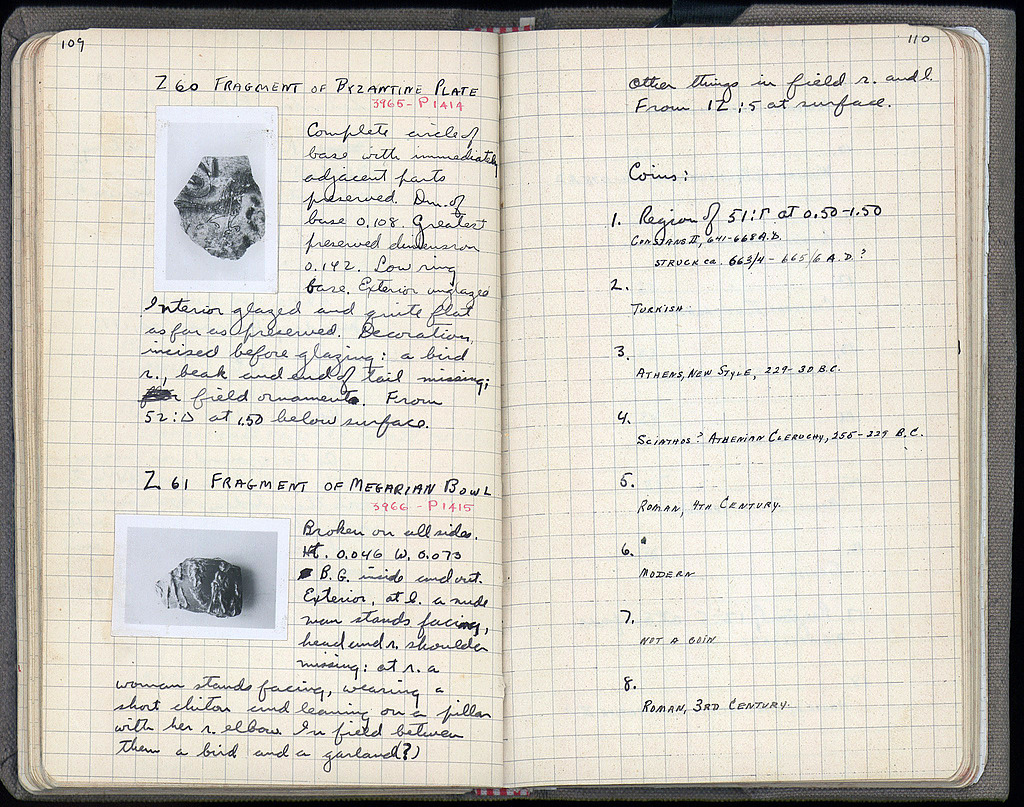 109
Z 60 FRAGMENT OF BYZANTINE PLATE
3965 - P 1414
Complete circle of
base with immediately
adjacent parts
preserved. Dm. of
base 0.108. Greatest
preserved dimension
0.142. Low ring
base. Exterior unglazed
Interior glazed and quite flat
as far as preserved. Decoration,
incised before glazing: a bird
r., beak and end of tail missing;
field ornaments. From
52:Δ at 1.50 below surface.
Z 61 FRAGMENT OF MEGARIAN BOWL
3966 - P 1415
Broken on all sides.
Ht. 0.046 W. 0.073
B.G. inside and out.
Exterior, at l. a nude
man stands facing,
head and r. shoulder
missing: at r. a
woman stands facing, wearing a
short chiton and leaning on a pillar
with her r. elbow. In field between
them a bird and a garland(?)
110
Other things in field r. and l.
From 12:5 at surface.
Coins:
1. Region of 51:Γ at 0.50-1.50
CONSTANS II, 641-668 A.D.
STRUCK ca. 663/4 - 665/6 A.D.?
2.
TURKISH
3.
ATHENS, NEW STYLE, 229-30 B.C.
4.
SCIATHOS? ATHENIAN CLERUCHY, 255-229 B.C.
5.
ROMAN, 4TH CENTURY.
6.
MODERN
7.
NOT A COIN
8.
ROMAN, 3RD CENTURY.